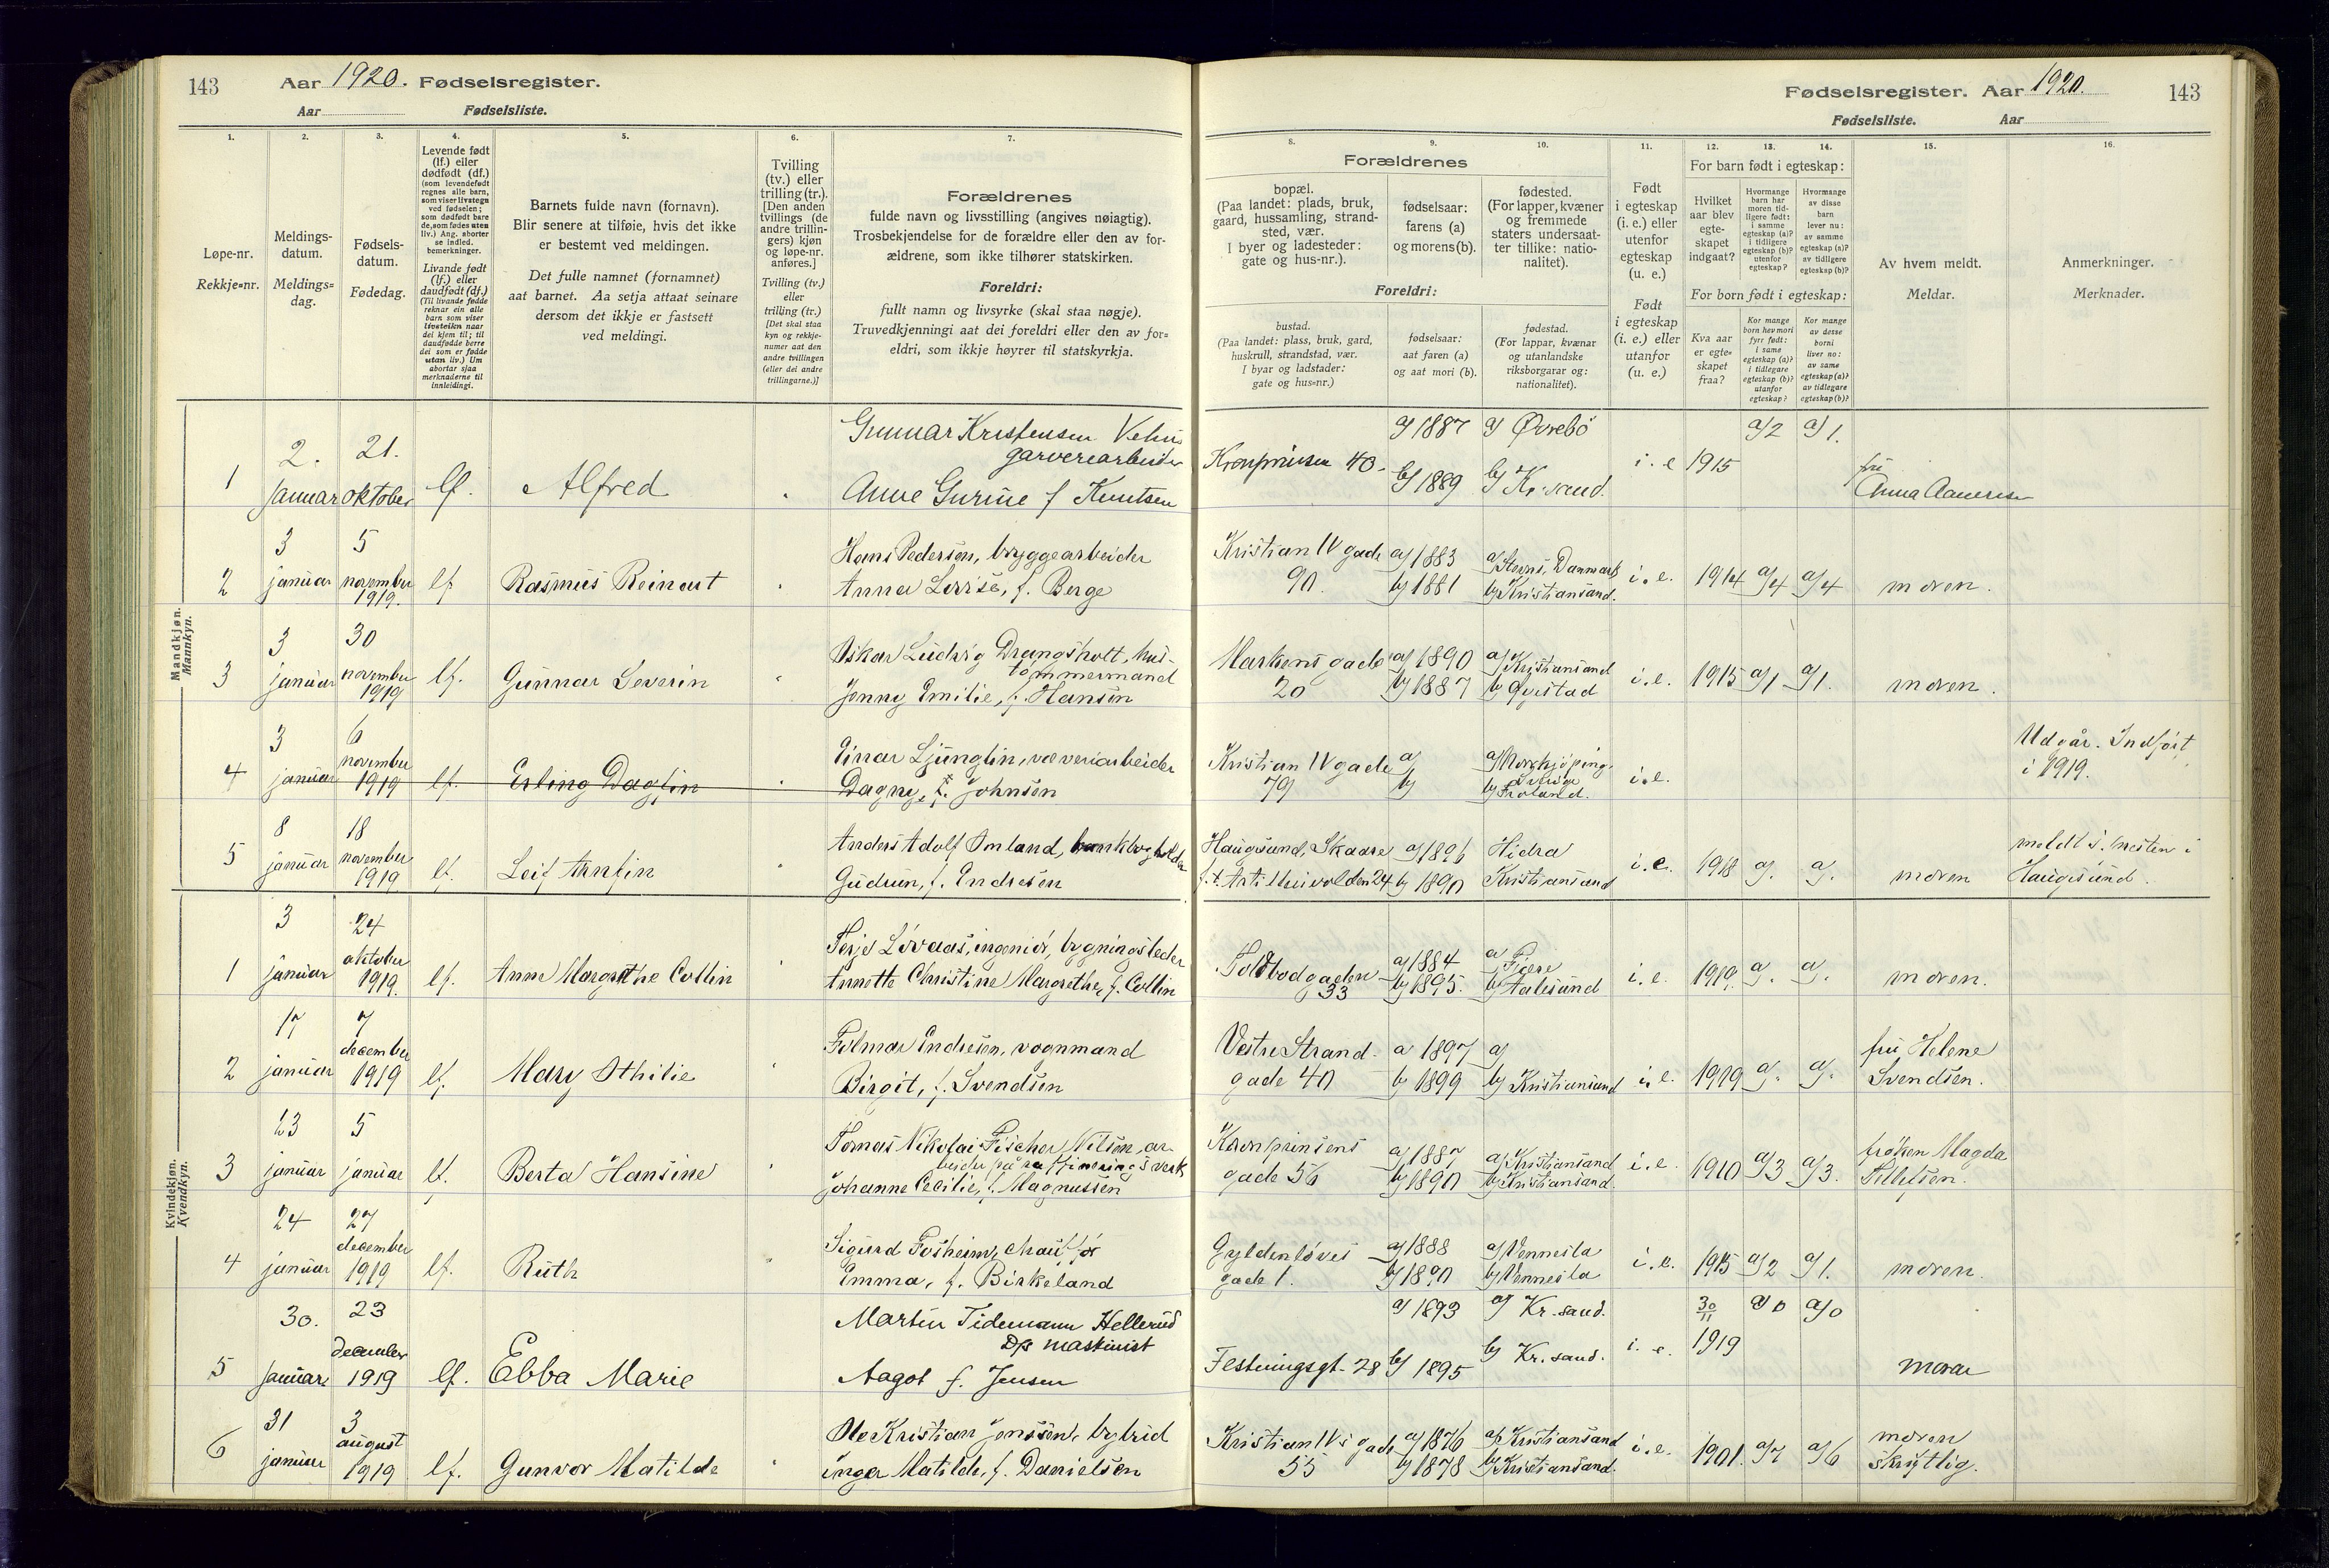 143 Aar 1920. Fødselsregister.
Aar Fødselsliste.
Fødselsregister. Aar 1920. 143
Fødselsliste. Aar
1. 2. 3. 4. 5. 6. 7.
8. 9. 10. 11. 12. 13. 14. 15. 16.
Løpe-nr.
Rekkje-nr.
Meldings-
datum.
Meldings-
dag.
Fødsels-
datum.
Fødedag.
Levende født
(lf.) eller
dødfødt (df.)
(som levendefødt
regnes alle barn,
som viser livstegn
ved fødselen;
som dødfødt bare
de, som fødes uten
liv.) Ang. aborter
se indled.
bemerkninger.
Livande født
(lf.) eller
daudfødt (df.)
(Til livande fødde
reknar ein alle
barn som viser
livsteikn naar
dei kjem til; til
daudfødde berre
dei som er fødde
utan liv.) Um
abortar sjaa
merknaderne til
innleidingi.
Barnets fulde navn (fornavn).
Blir senere at tilføie, hvis det ikke
er bestemt ved meldingen.
Det fulle namnet (fornamnet)
aat barnet. Aa setja attaat seinare
dersom det ikkje er fastsett
ved meldingi.
Tvilling
(tv.) eller
trilling (tr.).
[Den anden
tvillings (de
andre trillin-
gers) kjøn
og løpe-nr.
anføres.]
Tvilling (tv.)
eller
trilling (tr.)
[Det skal staa
kyn og rekkje-
numer aat den
andre tvillingen
(eller dei andre
trillingarne.)]
Forældrenes
fulde navn og livsstilling (angives nøiagtig).
Trosbekjendelse for de forældre eller den av for-
ældrene, som ikke tilhører statskirken.
Foreldri:
fullt namn og livsyrke (skal staa nøgje).
Truvedkjenningi aat dei foreldri eller den av for-
eldri, som ikkje høyrer til statskyrkja.
Forældrenes
bopæl.
(Paa landet: plads, bruk,
gaard, hussamling, strand-
sted, vær.
I byer og ladesteder:
gate og hus-nr.).
fødselsaar:
farens (a)
og morens (b).
fødested.
(For lapper, kvæner
og fremmede
staters undersaat-
ter tillike: natio-
nalitet).
Foreldri:
bustad.
(Paa landet: plass, bruk, gard,
huskrull, strandstad, vær.
I byar og ladstader:
gate og hus-nr.)
fødselsaar:
aat faren (a)
og aat mori (b).
fødestad.
(For lappar, kvænar
og utanlandske
riksborgarar og:
nationalitet).
Født
i egteskap
(i. e.) eller
utenfor
egteskap
(u. e.)
Født
i egteskap
(i. e.) eller
utanfor
(u. e.)
For barn født i egteskap:
Hvilket
aar blev
egte-
skapet
indgaat?
Hvormange
barn har
moren tid-
ligere født:
i samme
egteskap (a)?
i tidligere
egteskap (b)?
utenfor
egteskap?
Hvormange
av disse
barn
lever nu:
av samme
egteskap (a)?
av tidligere
egteskap (b)?
For born født i egteskap:
Kva aar
er egte-
skapet
fraa?
Kor mange
born hev mori
fyrr født:
i same
egteskap (a)?
i tidlegare
egteskap (b)?
utanfor
egteskap?
Kor mange
av desse
borni
liver no:
av same
egteskap (a)?
av tidlegare
egteskap (b)?
Av hvem meldt.
Meldar.
Anmerkninger.
Merknader.
Mandkjøn.
Mannkyn.
1 2. januar 21. oktober lf. Alfred
Gunnar Kristensen
garverearbeider
Anne Gurine f Knutsen
Kronprinsen 40. a) 1887 b) 1889 a) Øvrebö b) Kr.sand. i. e 1915 a) 2 a) 1. fru
2 3 januar 5 november 1919. lf. Rasmus Reinart
Hans Pedersen, bryggearbeider
Anna Lovise, f. Berge
Kristian IV gade 90. a) 1883 b) 1881 a) Danmark b) Kristiansand. i. e. 1914 a) 4 a) 4 moren.
3 3 januar 30 november 1919 lf. Gunnar Severin
Oskar Ludvig Drangsholt, hus-
tømmermand
Jenny Emilie, f. Hansen
Markens gade 20 a) 1890 b) 1887 a) Kristiansand b) Øyestad i. e. 1915 a) 1 a) 1. moren.
4 3 januar 6 november 1919 lf. Erling Dagfin
Einar Ljunglin, væveriarbeider
Dagny, f. Johnsen
Kristian IV gade 79 a) b) a) Norrkjöping. Sverige b) Froland. i. e.
Udgår. Indført
i 1919.
5 8 januar 18 november 1919 lf. Leif Arnfin
Anders Adolf Omland, bankbogholder
Gudrun, f. Endresen
Haugesund, Skaare f. t. Artillerivolden 24 a) 1896 b) 1890 Hidra Kristiansand i. e. 1918 a). a). moren
meldt i
Haugesund.
Kvindekjøn.
Kvendkyn.
1 3 januar 24 oktober 1919. lf. Anne Margrethe Collin
Terje Løvaas, ingeniör, bygningsleder
Annette Christine Margrethe, f. Collin
Toldbodgaden 33 a) 1884 b) 1895. a) Fjære b) Aalesund i. e. 1919. a). a). moren.
2 17 januar 7 december 1919 lf. Mary Othilie
Folmar Endresen, vognmand
Birgit, f. Svendsen
Vestre Strand-
gade 40 a 1897 b 1899 a) b) Kristiansand i. e. 1919 a). a). fru Helene
Svendsen.
3 13 januar 5 januar lf. Berta Hansine
Tomas Nikolai Fischer Nilsen, ar-
beider på raffineringsverk
Johanne Cecilie, f. Magnussen
Kronprinsens
gade 56 a) 1887 b) 1890 a) Kristiansand b) Kristiansand. i. e. 1910 a) 3 a) 3. frøken Magda
4 24 januar 27 december 1919 lf. Ruth
Sigurd Fosheim, chauffør
Emma, f. Birkeland
Gyldenløves
gade 1. a) 1888 b) 1890 a) Vennesla b) Vennesla i. e. 1915 a) 2 a) 1. moren.
5 30. januar 23 december 1919 lf. Ebba Marie
Martin Tidemann Hellerud
D/s maskinist
Aagot f. Jensen
Festningsgt. 28 a) 1893 b) 1895 a) Kr.sand. b) Kr.sand. i. e. 30/11 1919 a) 0 a) 0 moren
6 31 januar 3 august 1919 lf. Gunvor Matilde
Ole Kristian Jonssen, bybud
Inga Matilde, f. Danielsen
Kristian IVs gade 55 a) 1876 b) 1878 a) Kristiansand b) Kristiansand. i. e. 1901. a) 7 a) 6 moren
skriftlig.